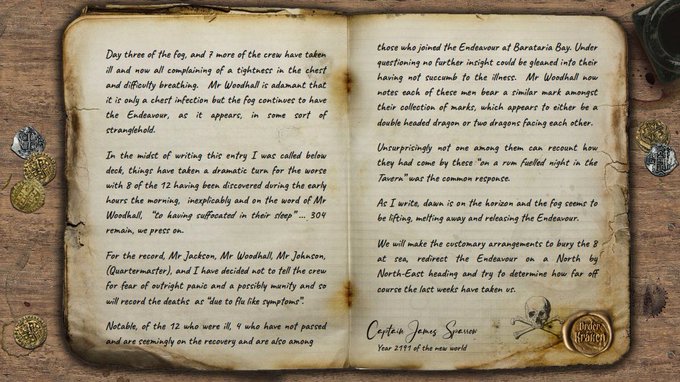 Day three of the fog, and 7 more of the crew have taken
ill and now all complaining of a tightness in the chest
and difficulty breathing. Mr Woodhall is adamant that
it is only a chest infection but the fog continues to have
the Endeavour, as it appears, in some sort of
stranglehold.
In the midst of writing this entry I was called below
deck, things have taken a dramatic turn for the worse
with 8 of the 12 having been discovered during the early
hours the morning, inexplicably and on the word of Mr
Woodhall, "to having suffocated in their sleep" ... 304
remain, we press on.
For the record, Mr Jackson, Mr Woodhall, Mr Johnson,
(Quartermaster), and I have decided not to tell the crew
for fear of outright panic and a possibly munity and so
will record the deaths as "due to flu like symptoms".
Notable, of the 12 who were ill, 4 who have not passed
and are seemingly on the recovery and are also among
those who joined the Endeavour at Barataria Bay. Under
questioning no further insight could be gleaned into their
having not succumb to the illness. Mr Woodhall now
notes each of these men bear a similar mark amongst
their collection of marks, which appears to either be a
double headed dragon or two dragons facing each other.
Unsurprisingly not one among them can recount how
they had come by these "on a rom fuelled night in the
Tavern" was the common response.
As I write, dawn is on the horizon and the fog seems to
be lifting, melting away and releasing the Endeavour.
We will make the customary arrangements to bury the 8
at sea, redirect the Endeavour on a North by
North-East heading and try to determine how far off
course the last weeks have taken us.
Captain James Sparrow
Year 2191 of the new world
Order
Kraken